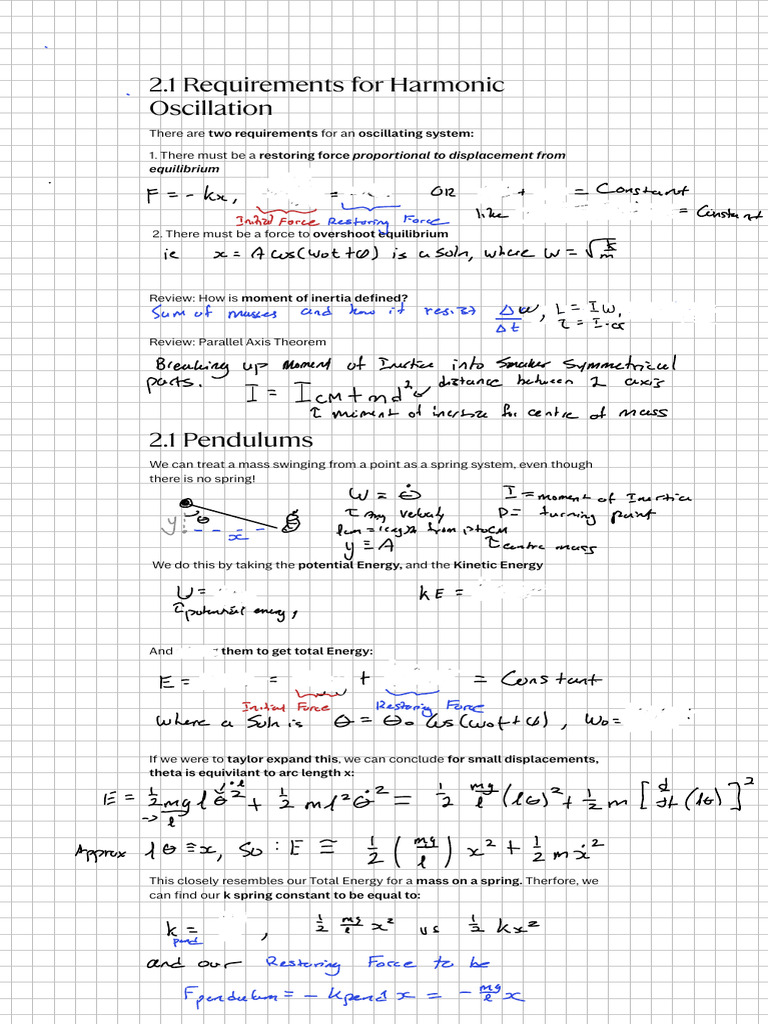 2.1 Requirements for Harmonic
Oscillation
There are two requirements for an oscillating system:
1. There must be a restoring force proportional to displacement from
equilibrium
F = - kx, = OR + = Constant
Initial Force Restoring Force like = Constant
2. There must be a force to overshoot equilibrium
ie x = A cos(ω₀t+φ) is a soln, where ω = √(k/m)
Review: How is moment of inertia defined?
Sum of masses and how it resists Δω/Δt, L = Iω,
τ = I·α
Review: Parallel Axis Theorem
Breaking up moment of Inertia into smaller symmetrical
parts. I = I_CM + md² distance between 2 axis
moment of inertia for centre of mass
2.1 Pendulums
We can treat a mass swinging from a point as a spring system, even though
there is no spring!
ω = θ̇ I = moment of Inertia
θ Ang velocity P = turning point
y x lcm = length from p to CM
y ≡ A centre mass
We do this by taking the potential Energy, and the Kinetic Energy
U = KE =
potential energy,
And them to get total Energy:
E = = + = Constant
Initial Force Restoring Force
where a Soln is θ = θ₀ cos(ω₀t+φ), ω₀ =
If we were to taylor expand this, we can conclude for small displacements,
theta is equivilant to arc length x:
E = ½ mgl θ² + ½ ml² θ̇² = ½ mg/l (lθ)² + ½ m [d/dt (lθ)]²
Approx lθ ≅ x, So : E ≅ ½ (mg/l) x² + ½ mẋ²
This closely resembles our Total Energy for a mass on a spring. Therfore, we
can find our k spring constant to be equal to:
k pend = , ½ mg/l x² vs ½ kx²
and our Restoring Force to be
Fpendulum = - Kpend x = - mg/l x